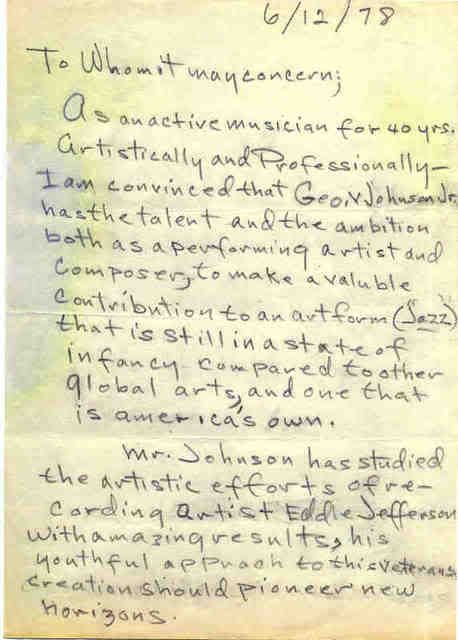 6/12/78
To Whom it may concern;
As an active musician for 40 yrs.
Artistically and Professionally—
I am convinced that Geo. V Johnson Jr.
has the talent and the ambition
both as a performing artist and
Composer, to make a valuble
Contribution to an art form ("Jazz")
that is still in a state of
infancy compared to other
global arts, and one that
is america's own.
Mr. Johnson has studied
the artistic efforts of re-
cording artist Eddie Jefferson
with amazing results, his
youthful appraoh to this veterans
creation should pioneer new
horizons.